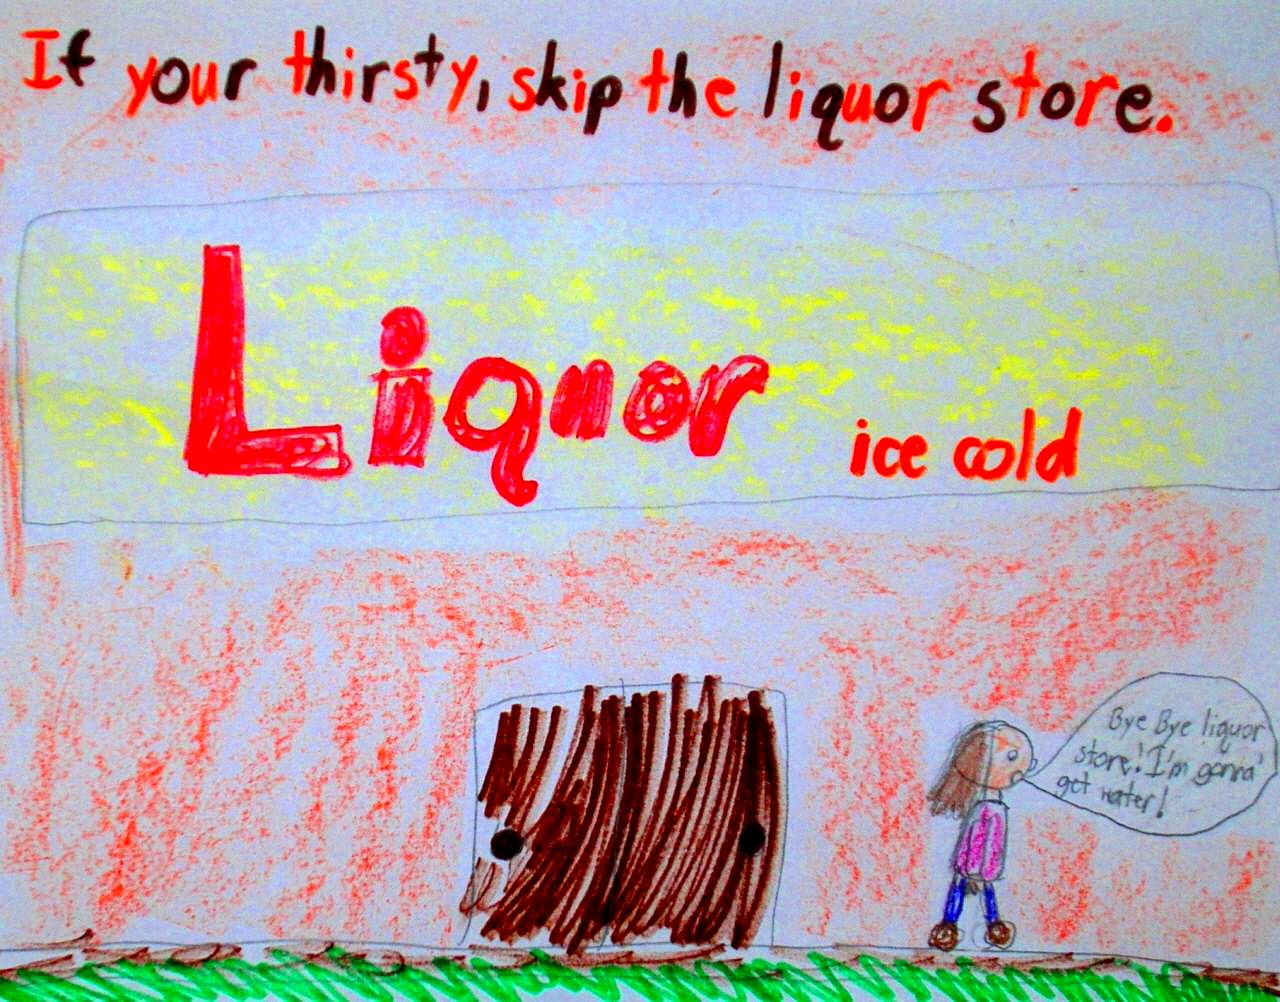 If your thirsty, skip the liquor store.
Liquor
ice cold
Bye Bye liquor
store! I'm gonna'
get water!